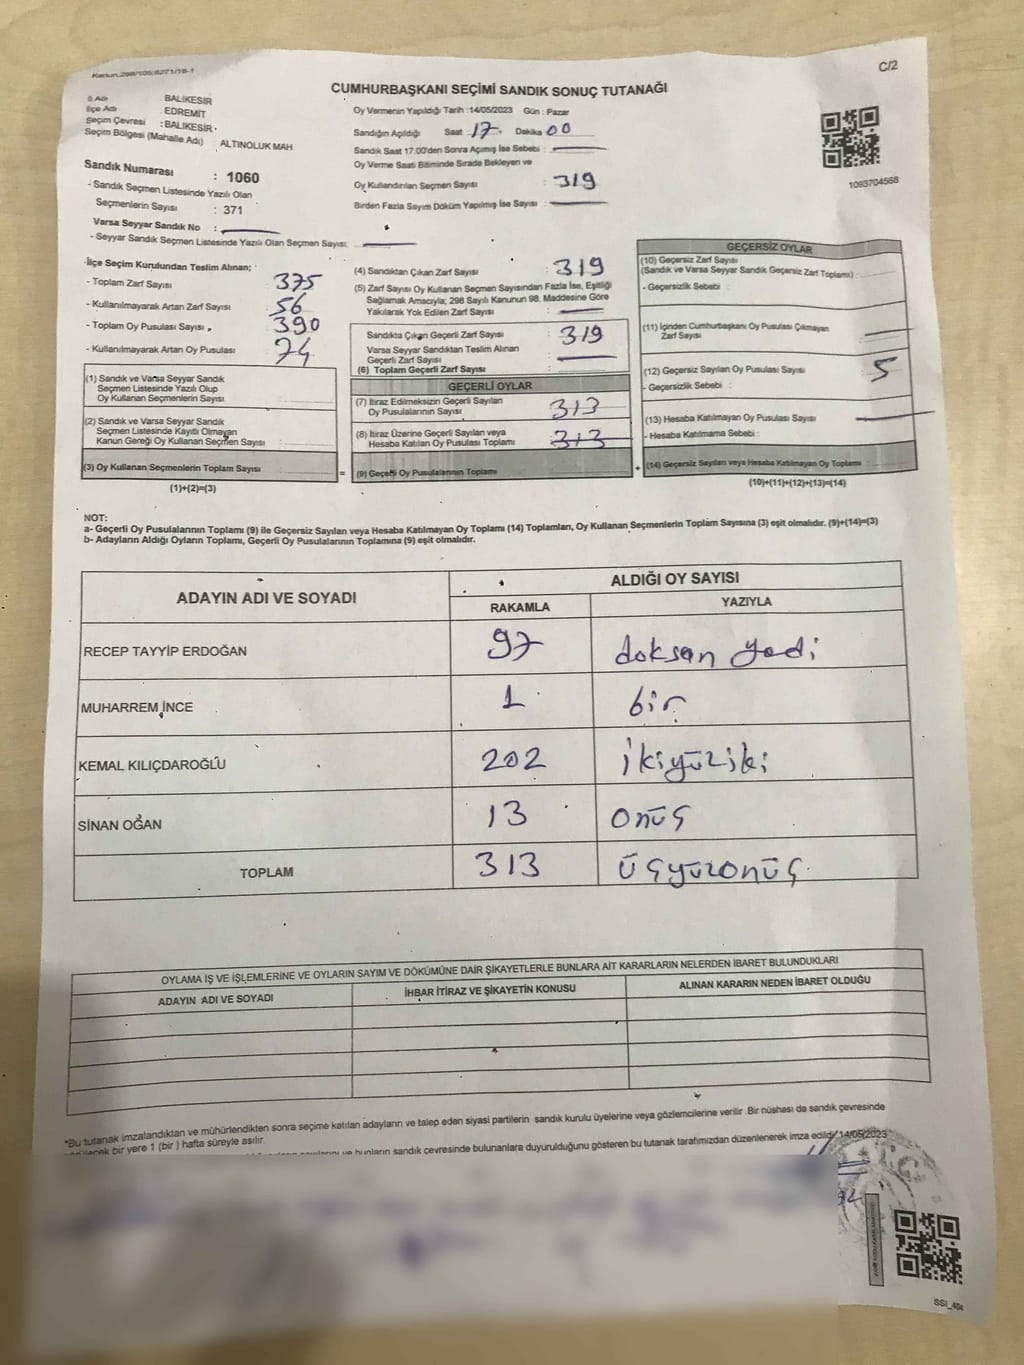 Kanun:298/105;6271/18-1
C/2
CUMHURBAŞKANI SEÇİMİ SANDIK SONUÇ TUTANAĞI
İl Adı BALIKESİR
İlçe Adı EDREMİT
Seçim Çevresi : BALIKESİR
Seçim Bölgesi (Mahalle Adı) ALTINOLUK MAH
Sandık Numarası : 1060
- Sandık Seçmen Listesinde Yazılı Olan
Seçmenlerin Sayısı : 371
Varsa Seyyar Sandık No :
- Seyyar Sandık Seçmen Listesinde Yazılı Olan Seçmen Sayısı:
Oy Vermenin Yapıldığı Tarih :14/05/2023 Gün : Pazar
Sandığın Açıldığı Saat 17 Dakika 00
Sandık Saat 17:00'den Sonra Açımış İse Sebebi :
Oy Verme Saati Bitiminde Sırada Bekleyen ve
Oy Kullandırılan Seçmen Sayısı : 319
Birden Fazla Sayım Döküm Yapılmış İse Sayısı :
1093704568
İlçe Seçim Kurulundan Teslim Alınan;
- Toplam Zarf Sayısı 375
- Kullanılmayarak Artan Zarf Sayısı 56
- Toplam Oy Pusulası Sayısı 390
- Kullanılmayarak Artan Oy Pusulası 74
(1) Sandık ve Varsa Seyyar Sandık
Seçmen Listesinde Yazılı Olup
Oy Kullanan Seçmenlerin Sayısı :
(2) Sandık ve Varsa Seyyar Sandık
Seçmen Listesinde Kayıtlı Olmayan
Kanun Gereği Oy Kullanan Seçmen Sayısı :
(3) Oy Kullanan Seçmenlerin Toplam Sayısı
(1)+(2)=(3)
(4) Sandıktan Çıkan Zarf Sayısı : 319
(5) Zarf Sayısı Oy Kullanan Seçmen Sayısından Fazla İse, Eşitliği
Sağlamak Amacıyla; 298 Sayılı Kanunun 98. Maddesine Göre
Yakılarak Yok Edilen Zarf Sayısı :
Sandıkta Çıkan Geçerli Zarf Sayısı : 319
Varsa Seyyar Sandıktan Teslim Alınan
Geçerli Zarf Sayısı
(6) Toplam Geçerli Zarf Sayısı :
GEÇERLİ OYLAR
(7) İtiraz Edilmeksizin Geçerli Sayılan
Oy Pusulalarının Sayısı : 313
(8) İtiraz Üzerine Geçerli Sayılan veya
Hesaba Katılan Oy Pusulası Toplamı : 313
= (9) Geçerli Oy Pusulalarının Toplamı
GEÇERSİZ OYLAR
(10) Geçersiz Zarf Sayısı
(Sandık ve Varsa Seyyar Sandık Geçersiz Zarf Toplamı) :
- Geçersizlik Sebebi :
(11) İçinden Cumhurbaşkanı Oy Pusulası Çıkmayan
Zarf Sayısı :
(12) Geçersiz Sayılan Oy Pusulası Sayısı : 5
- Geçersizlik Sebebi :
(13) Hesaba Katılmayan Oy Pusulası Sayısı :
- Hesaba Katılmama Sebebi :
+ (14) Geçersiz Sayılan veya Hesaba Katılmayan Oy Toplamı
(10)+(11)+(12)+(13)=(14)
NOT:
a- Geçerli Oy Pusulalarının Toplamı (9) ile Geçersiz Sayılan veya Hesaba Katılmayan Oy Toplamı (14) Toplamları, Oy Kullanan Seçmenlerin Toplam Sayısına (3) eşit olmalıdır. (9)+(14)=(3)
b- Adayların Aldığı Oyların Toplamı, Geçerli Oy Pusulalarının Toplamına (9) eşit olmalıdır.
ADAYIN ADI VE SOYADI ALDIĞI OY SAYISI
RAKAMLA YAZIYLA
RECEP TAYYİP ERDOĞAN 97 doksan yedi
MUHARREM İNCE 1 bir
KEMAL KILIÇDAROĞLU 202 ikiyüziki
SİNAN OĞAN 13 onüç
TOPLAM 313 üçyüzonüç
OYLAMA İŞ VE İŞLEMLERİNE VE OYLARIN SAYIM VE DÖKÜMÜNE DAİR ŞİKAYETLERLE BUNLARA AİT KARARLARIN NELERDEN İBARET BULUNDUKLARI
ADAYIN ADI VE SOYADI İHBAR İTİRAZ VE ŞİKAYETİN KONUSU ALINAN KARARIN NEDEN İBARET OLDUĞU
*Bu tutanak imzalandıktan ve mühürlendikten sonra seçime katılan adayların ve talep eden siyasi partilerin sandık kurulu üyelerine veya gözlemcilerine verilir. Bir nüshası da sandık çevresinde
bir yere 1 (bir ) hafta süreyle asılır.
bunların sandık çevresinde bulunanlara duyurulduğunu gösteren bu tutanak tarafımızdan düzenlenerek imza edildi. 14/05/2023
SSI_404